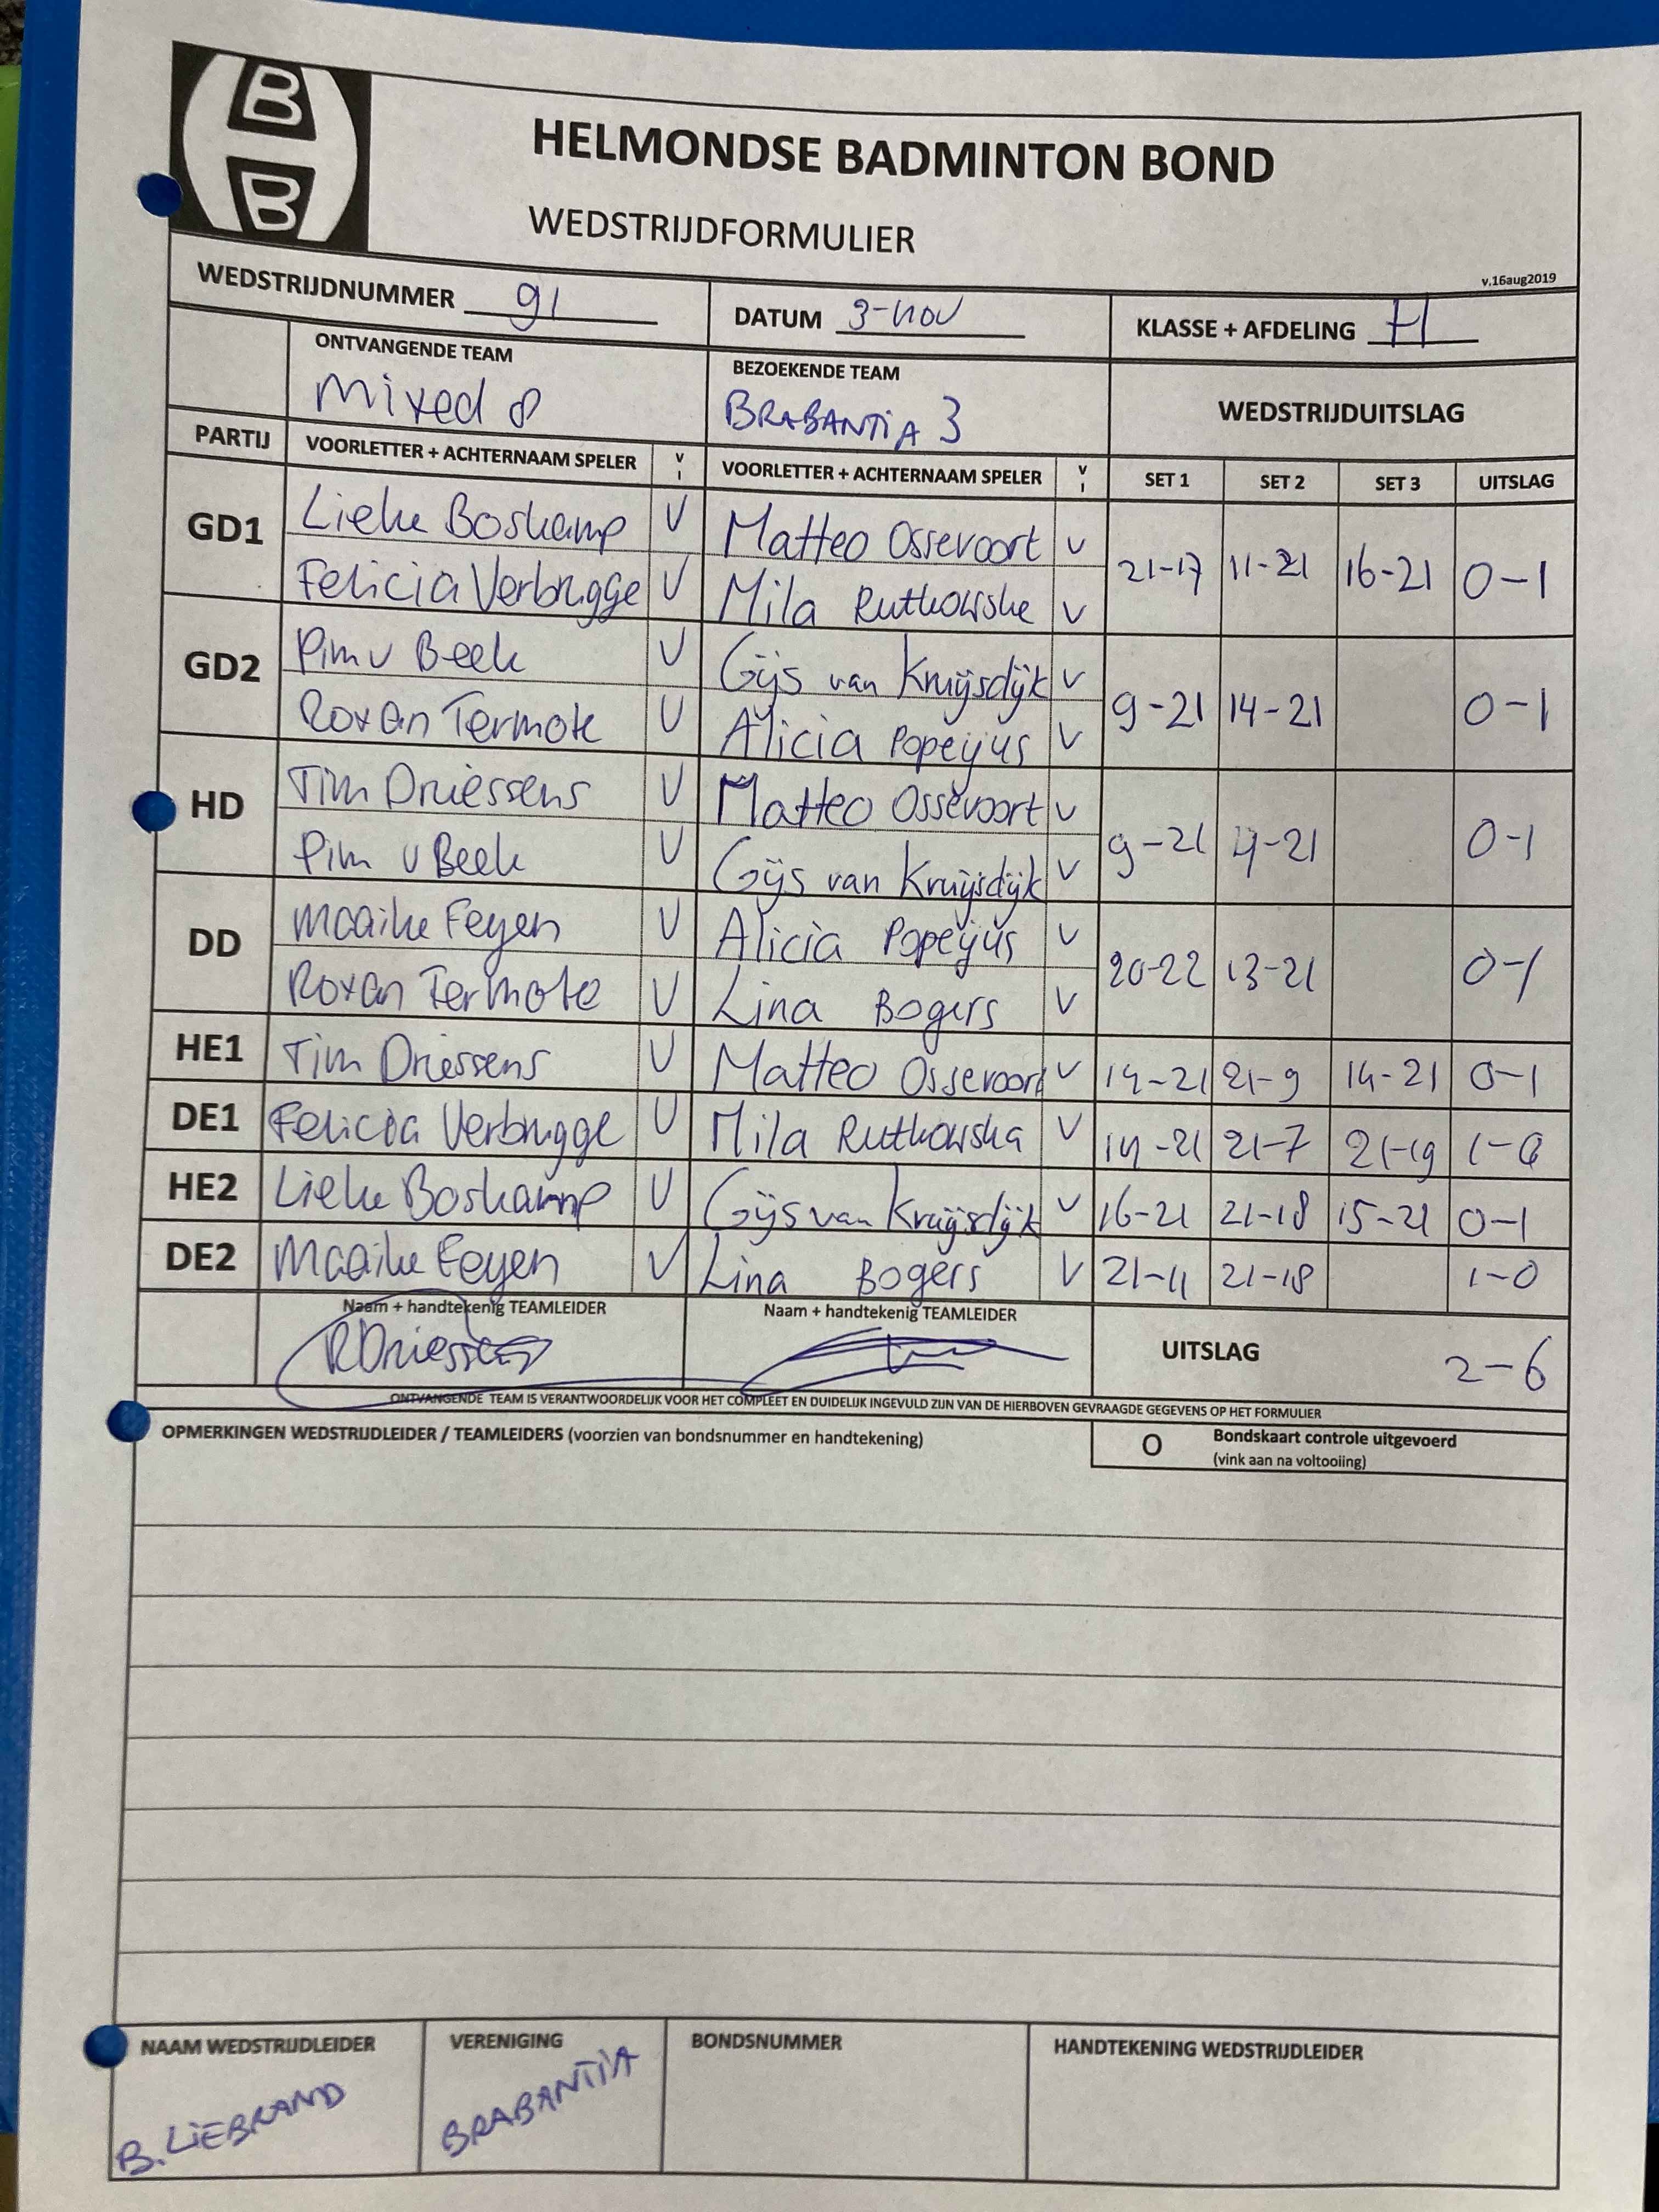 B
B
HELMONDSE BADMINTON BOND
WEDSTRIJDFORMULIER
v.16aug2019
WEDSTRIJDNUMMER 91 DATUM 3-nov KLASSE + AFDELING H
ONTVANGENDE TEAM BEZOEKENDE TEAM WEDSTRIJDUITSLAG
Mixed 8 BRABANTIA 3
PARTIJ VOORLETTER + ACHTERNAAM SPELER V I VOORLETTER + ACHTERNAAM SPELER V I SET 1 SET 2 SET 3 UITSLAG
GD1 Lieke Boskamp V Matteo Ossevoort V 21-17 11-21 16-21 0-1
Felicia Verbrugge V Mila Rutkowske V
GD2 Pim v Beek V Gijs van Kruijsdijk V 9-21 14-21 0-1
Roxan Termote V Alicia Popeijus V
HD Tim Driessens V Matteo Ossevoort V 9-21 4-21 0-1
Pim v Beek V Gijs van Kruijsdijk V
DD Maaike Feyen V Alicia Popeijus V 20-22 13-21 0-1
Roxan Termote V Lina Bogers V
HE1 Tim Driessens V Matteo Ossevoort V 14-21 21-9 14-21 0-1
DE1 Felicia Verbrugge V Mila Rutkowska V 14-21 21-7 21-19 1-0
HE2 Lieke Boskamp V Gijs van Kruijsdijk V 16-21 21-18 15-21 0-1
DE2 Maaike Feyen V Lina Bogers V 21-11 21-18 1-0
Naam + handtekenig TEAMLEIDER Naam + handtekenig TEAMLEIDER UITSLAG 2-6
RDriessens
ONTVANGENDE TEAM IS VERANTWOORDELIJK VOOR HET COMPLEET EN DUIDELIJK INGEVULD ZIJN VAN DE HIERBOVEN GEVRAAGDE GEGEVENS OP HET FORMULIER
OPMERKINGEN WEDSTRIJDLEIDER / TEAMLEIDERS (voorzien van bondsnummer en handtekening) O Bondskaart controle uitgevoerd
(vink aan na voltooiing)
NAAM WEDSTRIJDLEIDER VERENIGING BONDSNUMMER HANDTEKENING WEDSTRIJDLEIDER
B. LIEBRAND BRABANTIA